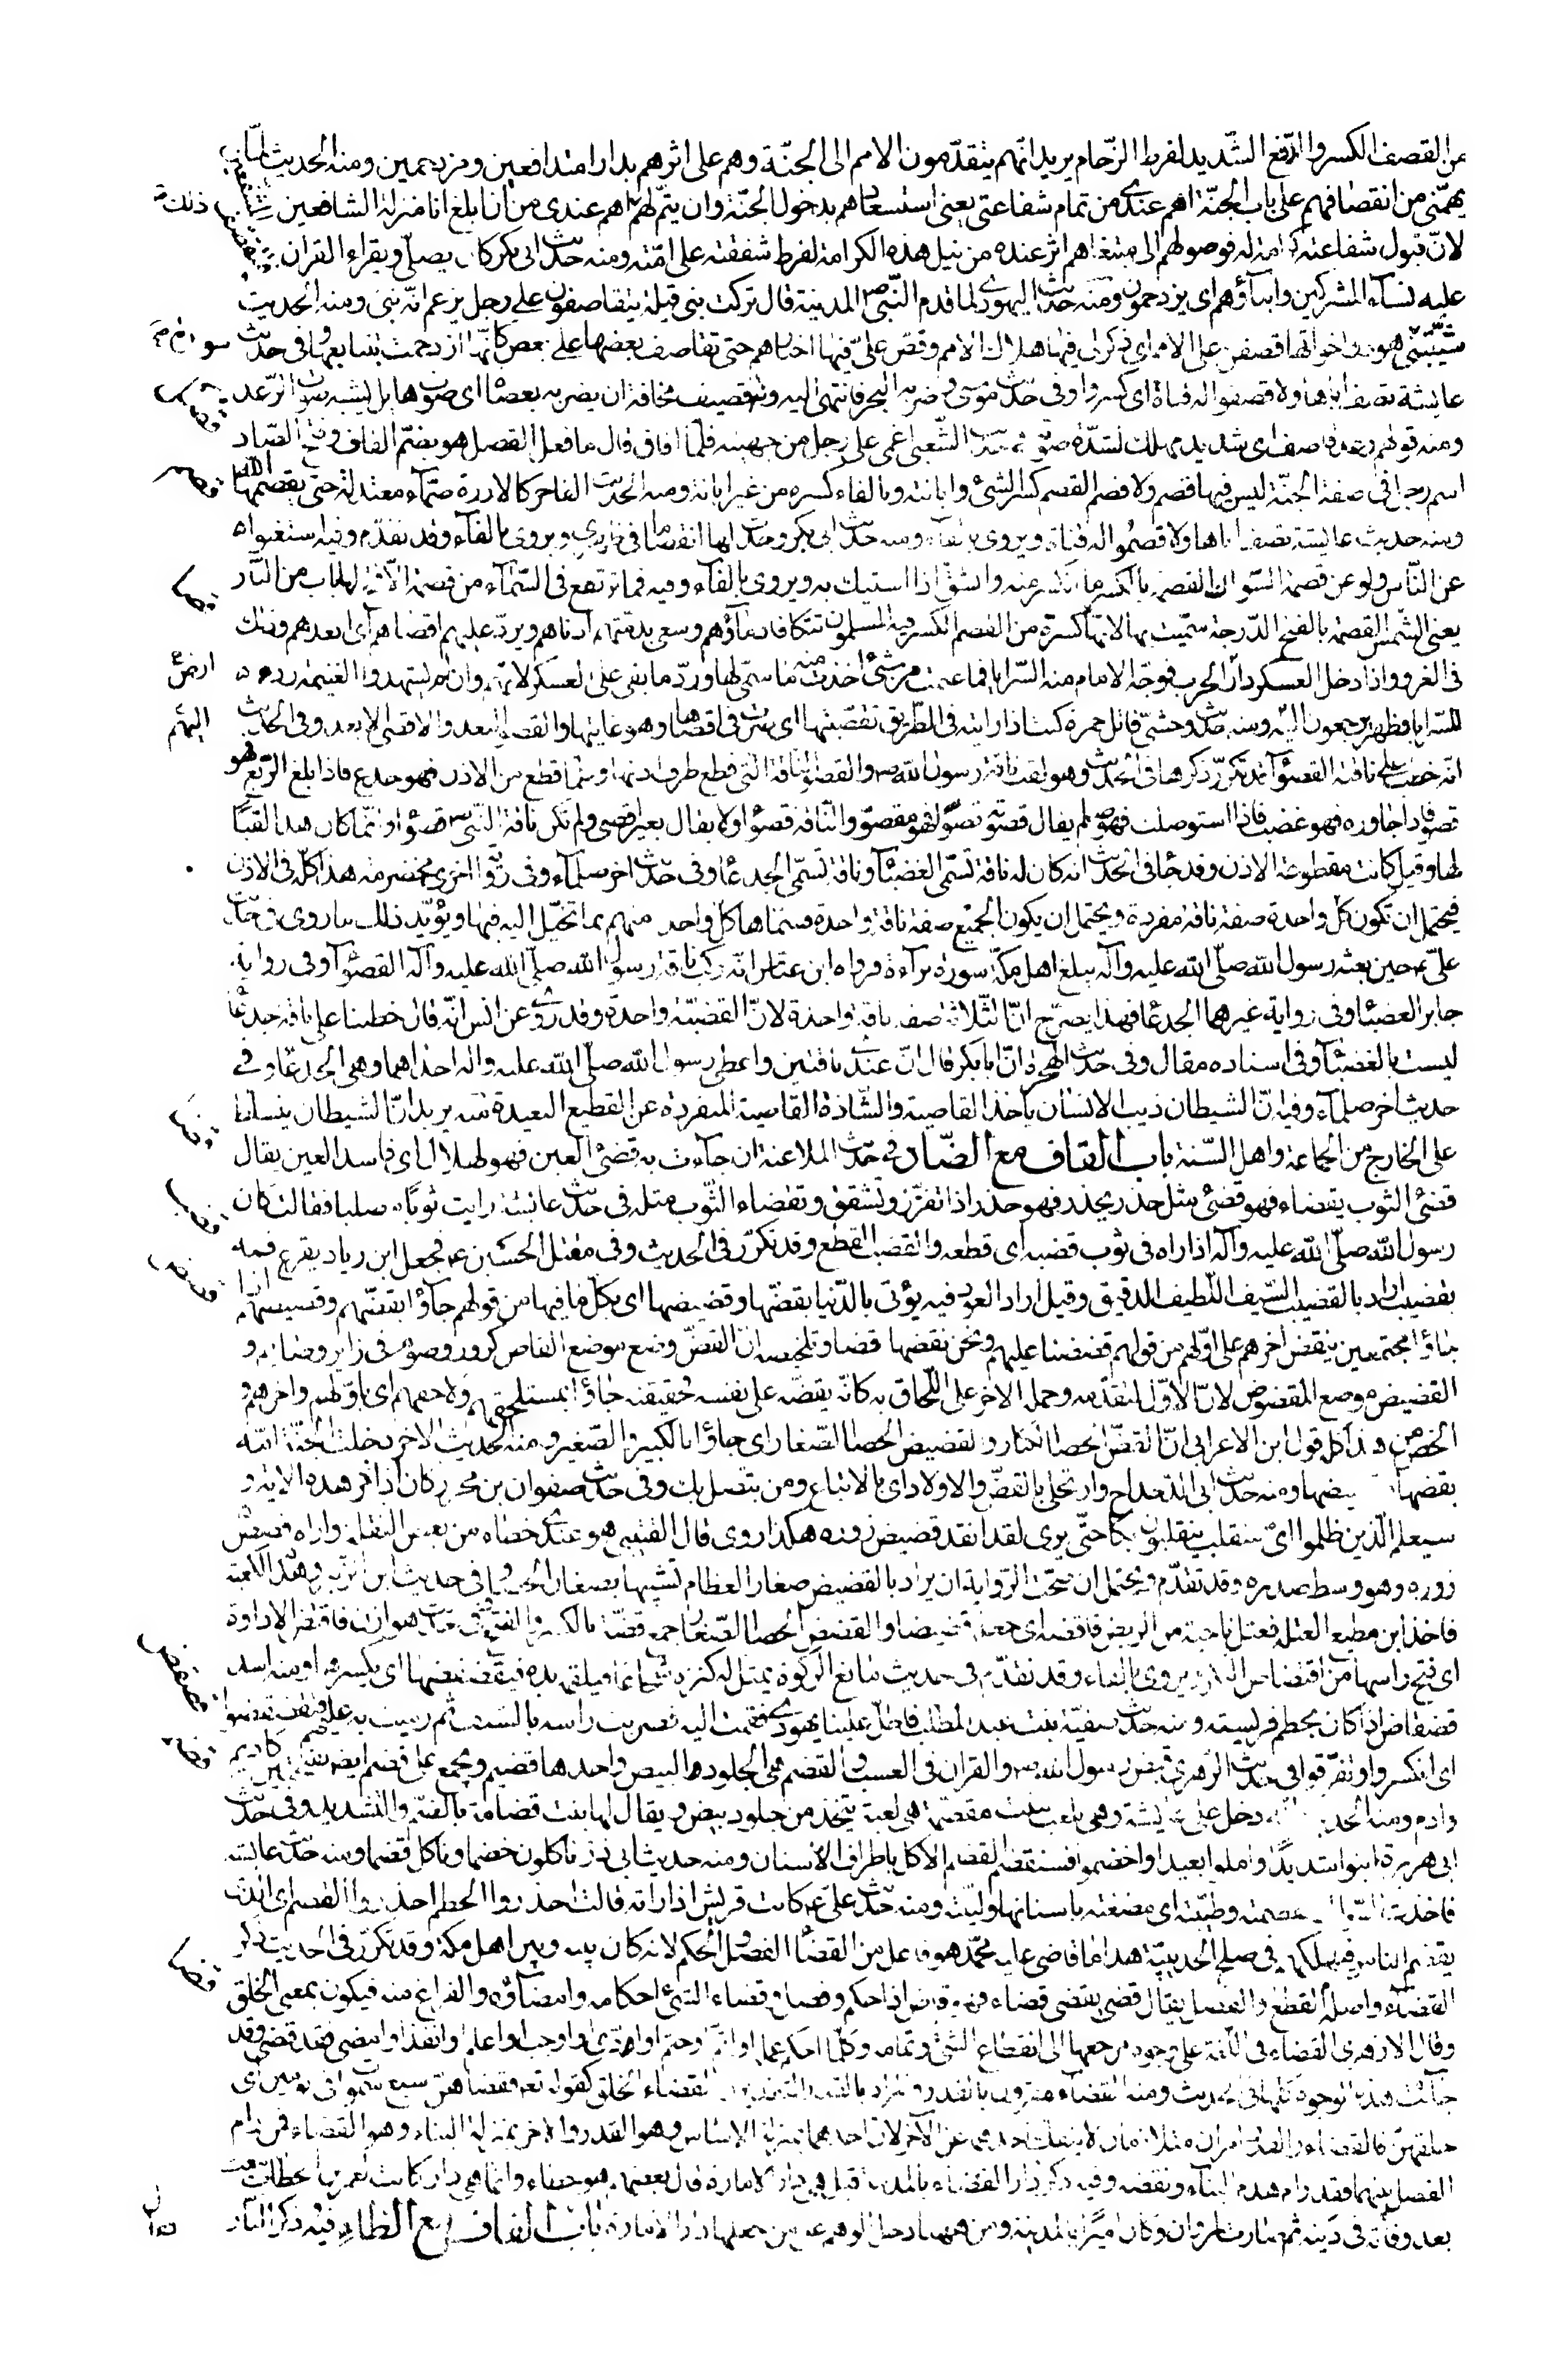 من القصف الكسر والدفع الشديد لفرط الزحام يريد انهم يتقدمون الامم الى الجنة وهم على اثرهم بدارا متدافعين ومزدحمين ومنه الحديث لما
يهمني من انقصافهم على باب الجنة اهم عندي من تمام شفاعتي يعني استسعادهم بدخول الجنة وان يتم لهم اهم عندي من ان ابلغ انا منزلة الشافعين
لان قبول شفاعته كرامة له فوصولهم الى مبتغاهم اثر عنده من نيل هذه الكرامة لفرط شفقته على امته ومنه حديث ابي بكر كان يصلي ويقراء القران
عليه نساء المشركين وابناؤهم اي يزدحمون ومنه حديث اليهودي لما قدم النبي المدينة قال تركت بني قيلة يتقاصفون على رجل يزعم انه نبي ومنه الحديث
شيبتني هود واخواتها قصفن على الامم اي ذكر لي فيها هلاك الامم وقص علي فيها اخبارهم حتى تقاصف بعضها على بعض كانها ازدحمت بتتابعها وفي حديث
عايشة تصف اباها ولا قصفوا له قناة اي كسروا وفي حديث موسى وضربه البحر فانتهى اليه وله قصيف مخافة ان يضربه بعصاه اي صوت هايل يشبه صوت الرعد
ومنه قولهم رعد قاصف اي شديد مهلك لشدة صوته حديث الشعبي اغمي على رجل من جهينة فلما افاق قال ما فعل القصل هو بضم القاف وفتح الصاد
اسم رجل في صفة الجنة ليس فيها قصم ولا فصم القصم كسر الشئ وابانته وبالفاء كسره من غير ابانة ومنه الحديث الفاجر كالارزة صماء معتدلة حتى يقصمها الله
ومنه حديث عايشة تصف اباها ولا قصموا له قناة ويروى بالفاء ومنه حديث ابي بكر ويروى بالفاء وقد تقدم وفيه استغنوا
عن الناس ولو عن قصمة السواك القصمة بالكسر ما انكسر منه وانشق اذا استيك به ويروى بالفاء وفيه فما ترتفع في السماء من قصمة الا فتح لها باب من النار
يعني الشمس القصمة بالفتح الدرجة سميت بها لانها كسرة من القصم الكسر فيه المسلمون تتكافا دماؤهم ويسعى بذمتهم ادناهم ويرد عليهم اقصاهم اي ابعدهم وذلك
في الغزو اذا دخل العسكر دار الحرب فوجه الامام منه السرايا فما غنمت من شئ اخذت منه ما سمى لها ورد ما بقى على العسكر لانهم وان لم يشهدوا الغنيمة ردء
للسرايا وظهر يرجعون اليهم ومنه حديث وحشي قاتل حمزة كنت اذا رايته في الطريق تقصيتها اي صرت في اقصاها وهو غايتها والقصو البعد والاقصى الابعد وفي الحديث
انه خطب على ناقته القصواء قد تكرر ذكرها في الحديث وهو لقب ناقة رسول الله والقصواء الناقة التي قطع طرف اذنها وكلما قطع من الاذن فهو جدع فاذا بلغ الربع فهو
قصو فاذا جاوزه فهو غضب فاذا استوصلت فهو صلم يقال قصوته قصوا فهو مقصو والناقة قصواء ولا يقال بعير اقصى ولم تكن ناقة النبي قصواء وانما كان هذا لقبا
لها وقيل كانت مقطوعة الاذن وقد جاء في الحديث انه كان له ناقة تسمى العضباء وناقة تسمى الجدعاء وفي حديث اخر صلماء وفي رواية اخرى مخضرمة هذا كله في الاذن
فيحتمل ان تكون كل واحدة صفة ناقة مفردة ويحتمل ان يكون الجميع صفة ناقة واحدة فسماها كل واحد منهم بما تخيل اليه فيها ويؤيد ذلك ما روى في حديث
علي ع حين بعثه رسول الله صلى الله عليه وآله يبلغ اهل مكة سورة براءة فرواه ابن عباس انه ركب ناقة رسول الله صلى الله عليه وآله القصواء وفي رواية
جابر العضباء وفي رواية غيرهما الجدعاء فهذا يصرح ان الثلاثة صفة ناقة واحدة لان القضية واحدة وقد روى عن انس انه قال خطبنا على ناقة جدعاء
ليست بالعضباء وفي اسناده مقال وفي حديث الهجرة ان ابا بكر قال ان عندي ناقتين واعطى رسول الله صلى الله عليه واله احداهما وهي الجدعاء وفي
حديث اخر صلماء وفيه ان الشيطان ذيب الانسان ياخذ القاصية والشاذة القاصية المنفردة عن القطيع البعيدة منه يريد ان الشيطان يتسلط
على الخارج من الجماعة واهل السنة باب القاف مع الضاد في حديث الملاعنة ان جاءت به قضئ العين فهو لهلال اي فاسد العين يقال
قضئ الثوب يقضاء فهو قضئ مثل حذر يحذر فهو حذر اذا تفزر وتشقق وتقضاء الثوب مثله في حديث عائشة رايت ثوبا مصلبا فقالت كان
رسول الله صلى الله عليه وآله اذا راه في ثوب قضبه اي قطعه والقضب القطع وقد تكرر في الحديث وفي مقتل الحسين ع فجعل ابن زياد يقرع فمه
بقضيب اراد بالقضيب السيف اللطيف الدقيق وقيل اراد العود فيه يؤتى بالدنيا بقضها وقضيضها اي بكل ما فيها من قولهم جاؤا بقضهم وقضيضهم اذا
جاؤا مجتمعين ينقض اخرهم على اولهم من قولهم قضضنا عليهم ونحن نقضها قضا وتلخيصه ان القض وضع موضع القاض كزور وصوم في زاير وصايم و
القضيض موضع المقضوض لان الاول لتقدمه وحمله الاخر على اللحاق به كانه يقضه على نفسه فحقيقته جاؤا بمستلحقهم ولاحقهم اي باولهم واخرهم و
الخص من هذا كله قول ابن الاعرابي ان القض الحصا الكبار والقضيض الحصا الصغار اي جاؤا بالكبير والصغير ومنه الحديث الاخر دخلت الجنة امة
بقضها وقضيضها ومنه حديث ابي الدحداح وارتحلي بالقض والاولاد اي بالاتباع ومن يتصل بك وفي حديث صفوان بن محرز كان اذا قرء هذه الاية و
سيعلم الذين ظلموا اي منقلب ينقلبون بكا حتى يرى لقد انقد قضيض زوره هكذا روى قال القتيبي هو عندي خطاء من بعض النقلة واراه قصص
زوره وهو وسط صدره وقد تقدم ويحتمل ان صحت الرواية ان يراد بالقضيض صغار العظام تشبيها بصغار الحصا وفي حديث ابن الزبير وهدم الكعبة
فاخذ ابن مطيع العتلة فعتل ناحية من الربض فاقضه اي جعله قضيضا والقضيض الحصا الصغار جمع قضة بالكسر والفتح وفي حديث هوازن فاقتض الاداوة
اي فتح راسها من اقتضاض البكر ويروى بالفاء وقد تقدم في حديث مانع الزكوة يمثل له كنزه شجاعا فيلقمه يده فيقضقضها اي يكسرها ومنه اسد
قضقاض اذا كان يحطم فريسته ومنه حديث صفية بنت عبد المطلب فاطل علينا يهودي فقمت اليه فضربت راسه بالسيف ثم رميت به عليهم فتقضقضوا
اي انكسروا وتفرقوا في حديث الزهري قبض رسول الله والقران في العسب والقضم هي الجلود البيض واحدها قضيم ويجمع على قضم ايضا بفتحتين كاديم
وادم ومنه الحديث انه دخل على عايشة وهي تلعب ببنت مقضمة هي لعبة تتخذ من جلود بيض ويقال لها بنت قضامة بالضم والتشديد وفي حديث
ابي هريرة ابنوا شديدا واملوا بعيدا واخضموا فسنقضم القضم الاكل باطراف الاسنان ومنه حديث ابي ذر تاكلون خضما وناكل قضما ومنه حديث عايشة
فاخذت السواك فقضمته وطيبته اي مضغته باسنانها ولينته ومنه حديث علي ع كانت قريش اذا راته قالت احذروا الحطم احذروا القضم اي الذي
يقضم الناس فيهلكهم في صلح الحديبية هذا ما قاضى عليه محمد هو فاعل من القضاء الفصل والحكم لانه كان بينه وبين اهل مكة وقد تكرر في الحديث ذكر
القضاء واصله القطع والفصل يقال قضى يقضي قضاء فهو قاض اذا حكم وفصل وقضاء الشئ احكامه وامضاؤه والفراغ منه فيكون بمعنى الخلق
وقال الازهري القضاء في اللغة على وجوه مرجعها الى انقطاع الشئ وتمامه وكلما احكم عمله او اتم او ختم او ادي او اوجب او اعلم او انفذ او امضى فقد قضى وقد
جاءت هذه الوجوه كلها في الحديث ومنه القضاء مقرون بالقدر والمراد بالقدر التقدير وبالقضاء الخلق كقوله تع فقضاهن سبع سموات في يومين اي
خلقهن فالقضاء والقدر امران متلازمان لا ينفك احدهما عن الآخر لان احدهما بمنزلة الاساس وهو القدر والاخر بمنزلة البناء وهو القضاء فمن رام
الفصل بينهما فقد رام هدم البناء ونقضه وفيه ذكر دار القضاء بالمدينة قيل هي دار الامارة قال بعضهم هو خطاء وانما هي دار كانت لعمر بن الخطاب بيعت
بعد وفاته في دينه ثم صارت لمروان وكان اميرا بالمدينة ومن ههنا دخل الوهم على من جعلها دار الامارة باب القاف مع الظاء فيه ذكر النار